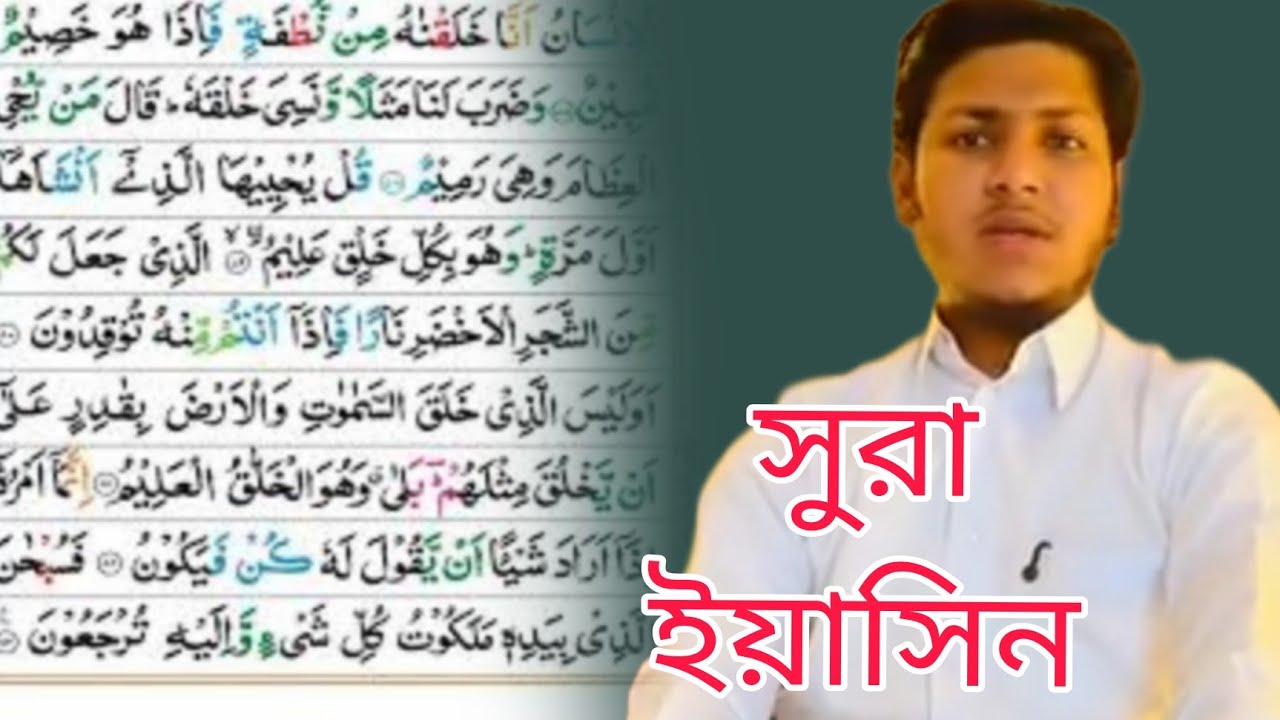 الْاِنْسَانُ اَنَّا خَلَقْنٰهُ مِنْ نُّطْفَةٍ فَاِذَا هُوَ خَصِيْمٌ
مُّبِيْنٌ ۝ وَضَرَبَ لَنَا مَثَلًا وَّنَسِىَ خَلْقَهٗ ؕ قَالَ مَنْ يُّحْىِ
الْعِظَامَ وَهِىَ رَمِيْمٌ ۝ قُلْ يُحْيِيْهَا الَّذِىْٓ اَنْشَاَهَآ
اَوَّلَ مَرَّةٍ ؕ وَهُوَ بِكُلِّ خَلْقٍ عَلِيْمُ ۝ الَّذِىْ جَعَلَ لَكُمْ
مِّنَ الشَّجَرِ الْاَخْضَرِ نَارًا فَاِذَآ اَنْتُمْ مِّنْهُ تُوْقِدُوْنَ ۝
اَوَلَيْسَ الَّذِىْ خَلَقَ السَّمٰوٰتِ وَالْاَرْضَ بِقٰدِرٍ عَلٰٓى
اَنْ يَّخْلُقَ مِثْلَهُمْ ؔؕ بَلٰى ۗ وَهُوَ الْخَلّٰقُ الْعَلِيْمُ ۝ اِنَّمَآ اَمْرُهٗٓ
اِذَآ اَرَادَ شَيْـًٔا اَنْ يَّقُوْلَ لَهٗ كُنْ فَيَكُوْنُ ۝ فَسُبْحٰنَ
الَّذِىْ بِيَدِهٖ مَلَكُوْتُ كُلِّ شَىْءٍ وَّاِلَيْهِ تُرْجَعُوْنَ ۝
সুরা
ইয়াসিন